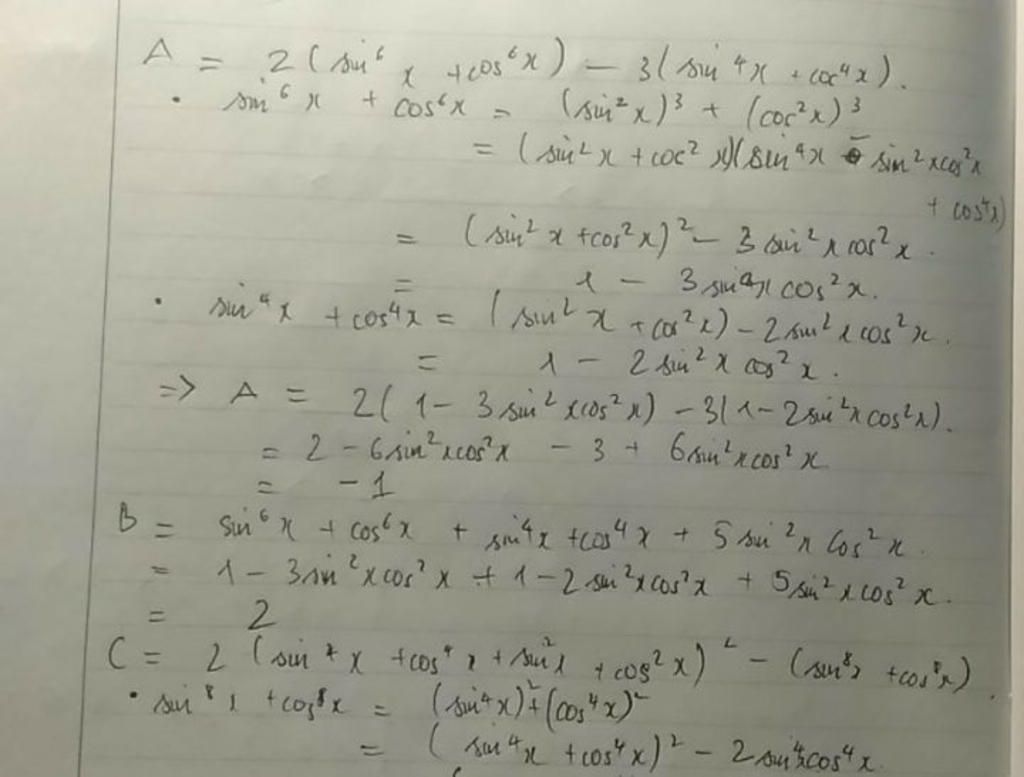 A = 2(sin⁶x + cos⁶x) – 3(sin⁴x + coc⁴x).
• sin⁶x + cos⁶x = (sin²x)³ + (coc²x)³
= (sin²x + coc²x)(sin⁴x – sin²xcos²x
+ cos⁴x)
= (sin²x + cos²x)² – 3sin²xcos²x.
= 1 – 3sin²xcos²x.
• sin⁴x + cos⁴x = (sin²x + cos²x) – 2sin²xcos²x.
= 1 – 2sin²xcos²x.
=> A = 2(1 – 3sin²xcos²x) – 3(1 – 2sin²xcos²x).
= 2 – 6sin²xcos²x – 3 + 6sin²xcos²x
= –1
B = sin⁶x + cos⁶x + sin⁴x + cos⁴x + 5sin²xcos²x.
= 1 – 3sin²xcos²x + 1 – 2sin²xcos²x + 5sin²xcos²x.
= 2
C = 2(sin⁴x + cos⁴x + sin²x + cos²x)² – (sin⁸x + cos⁸x).
• sin⁸x + cos⁸x = (sin⁴x)² + (cos⁴x)²
= (sin⁴x + cos⁴x)² – 2sin⁴xcos⁴x.